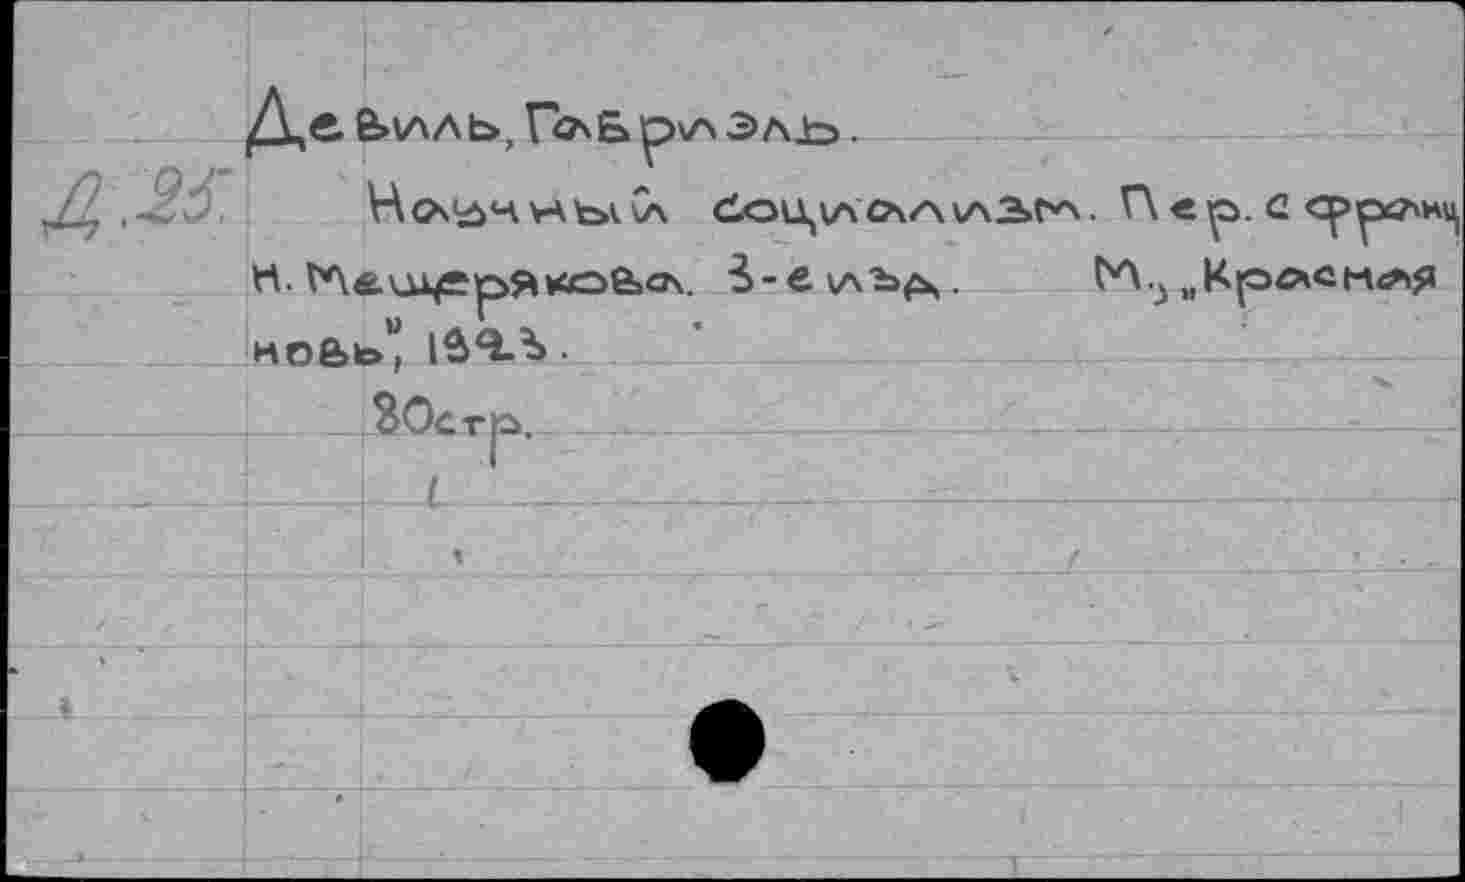 Девилль, Габриэль.
Д.25.
Научный социализм. Пер. с франц.
Н. Мещерякова. 3-е изд. М., „Красная
новь", 1923.
80стр.